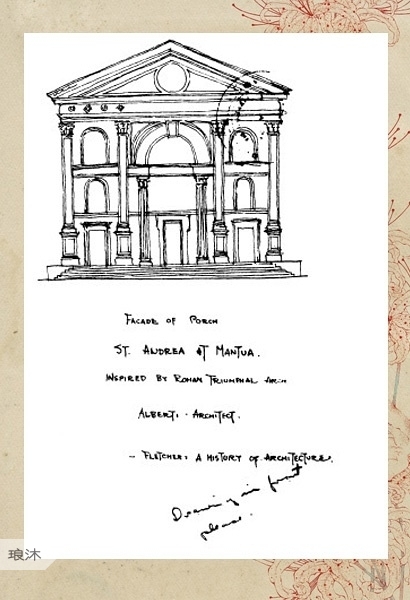 FACADE OF PORCH
ST. ANDREA AT MANTUA.
INSPIRED BY ROMAN TRIUMPHAL ARCH
ALBERTI - ARCHITECT.
- FLETCHER: A HISTORY OF ARCHITECTURE.
Drawing in front
please.
琅沐